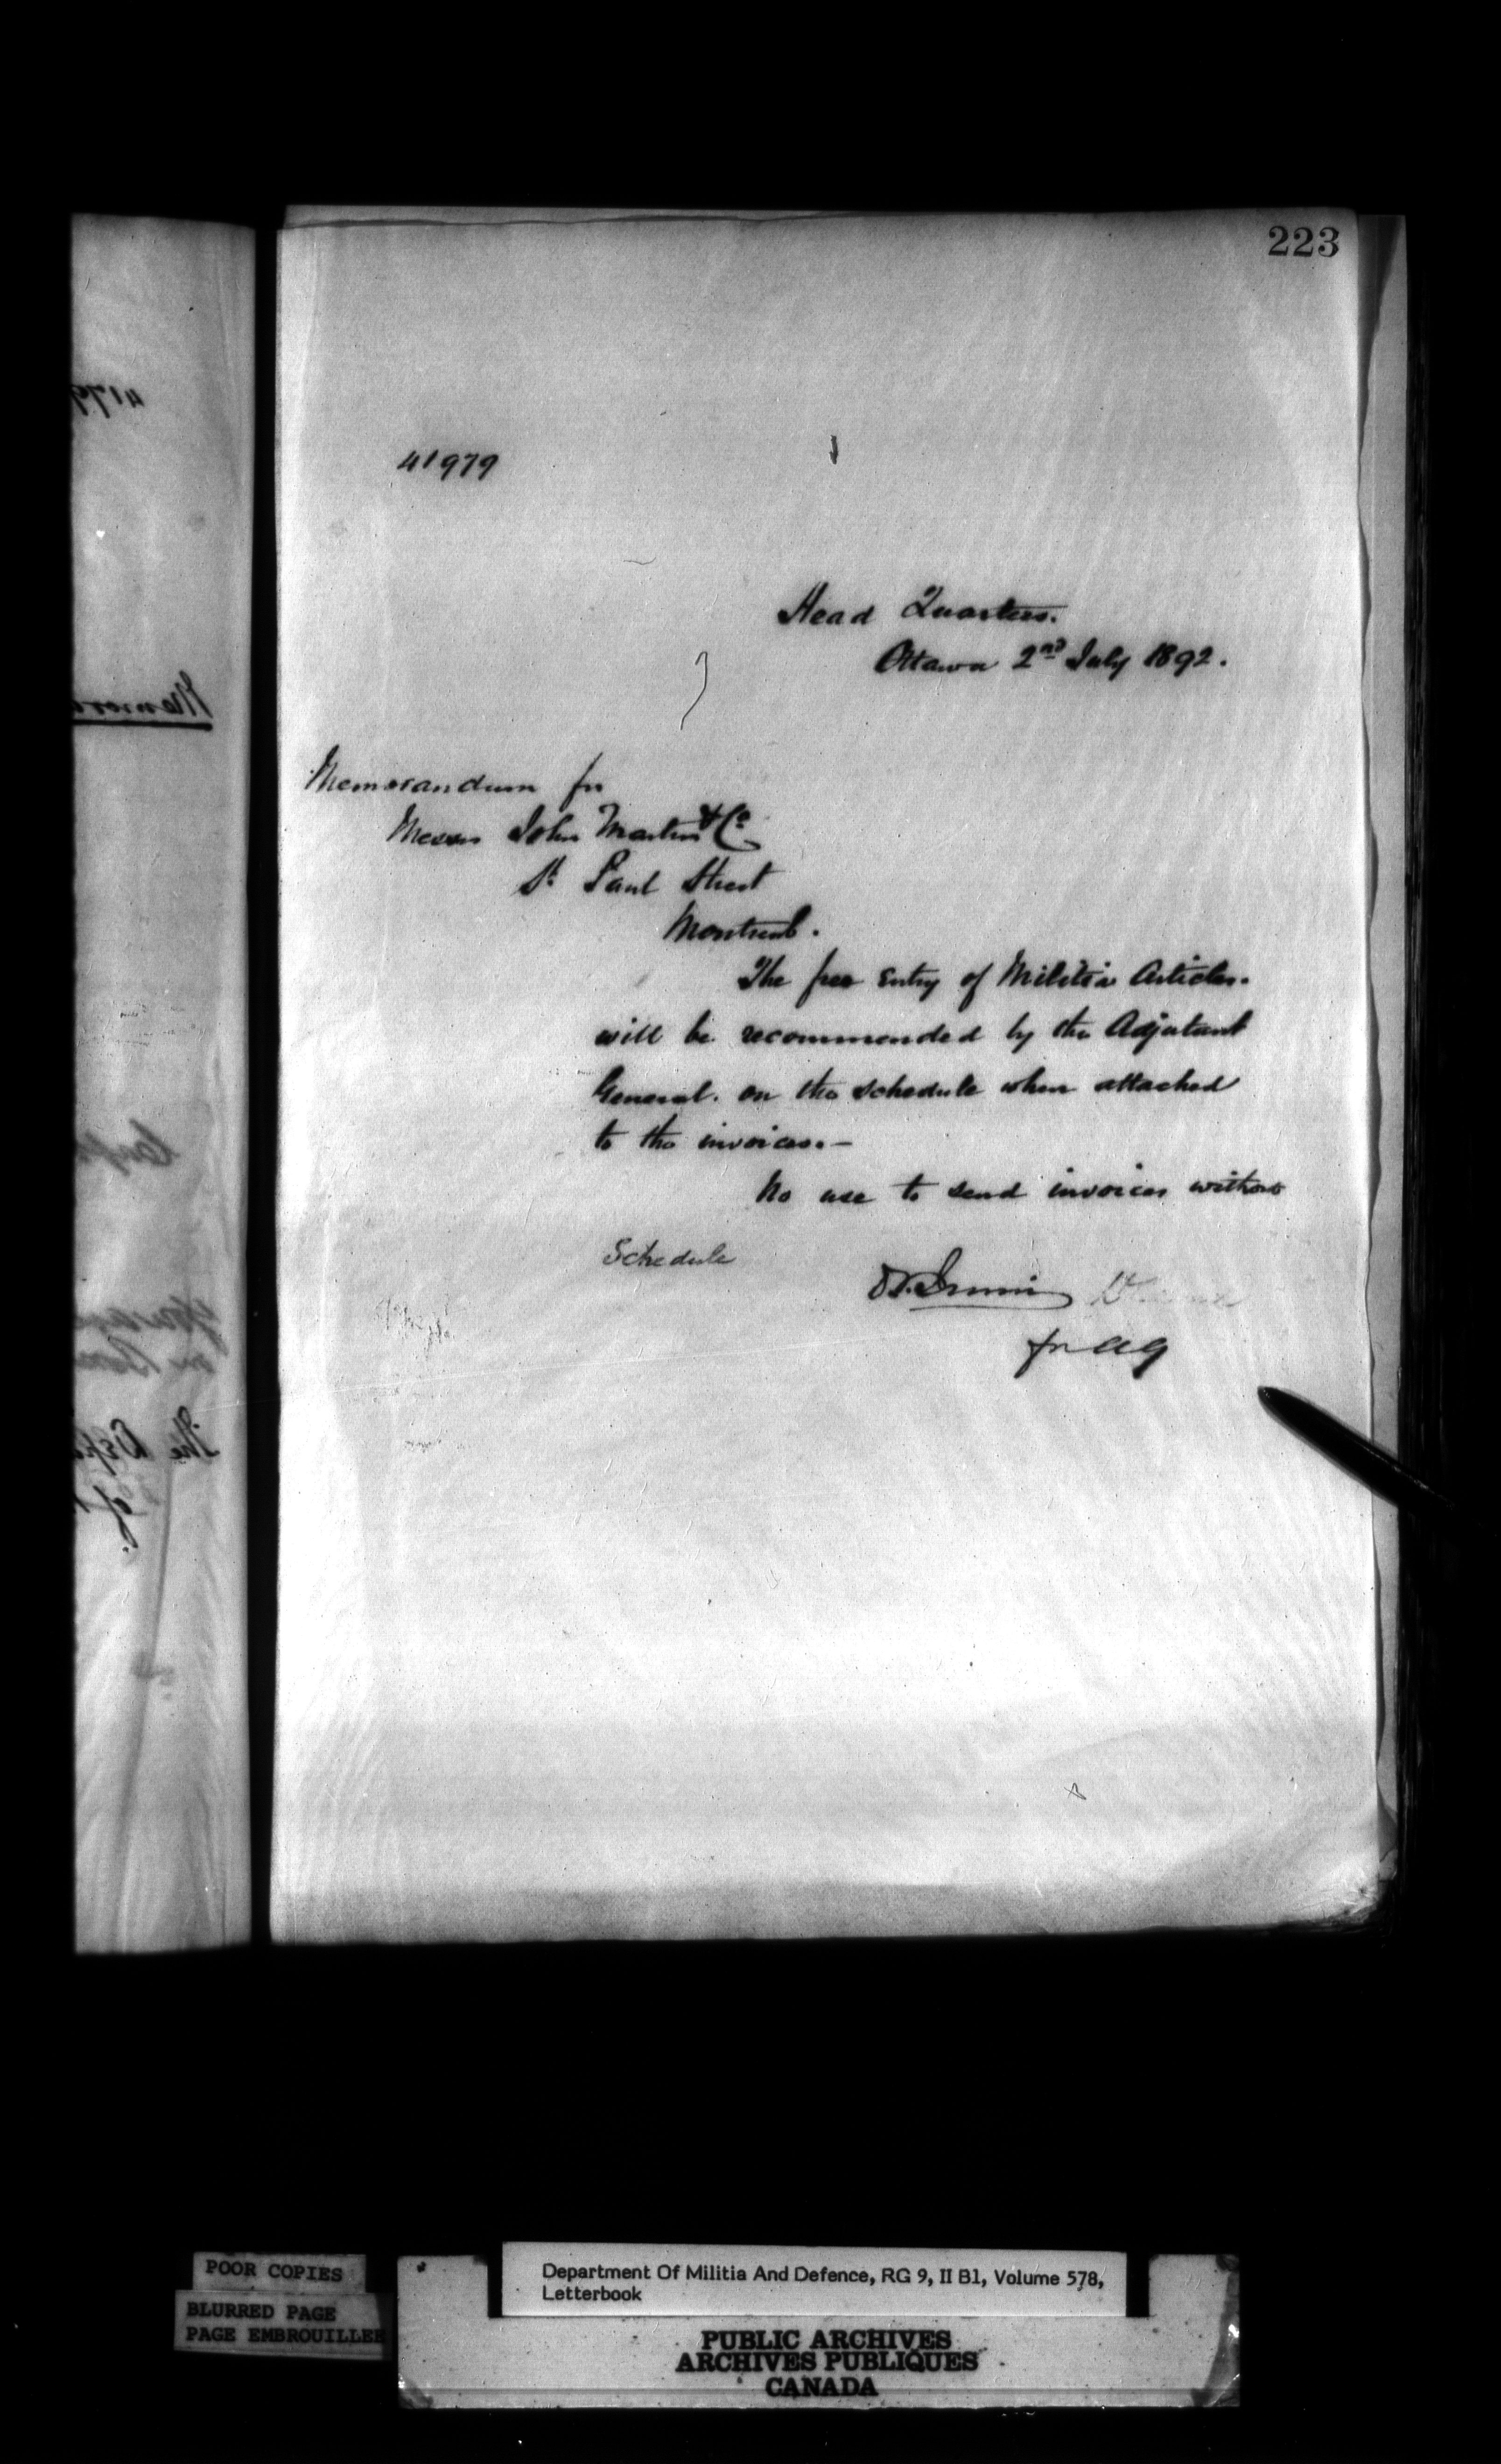 223
41979
Head Quarters.
Ottawa 2nd July 1892.
Memorandum for
Messrs John Martin & Co
St Paul Street
Montreal.
The free Entry of Militia Articles.
will be recommended by the Adjutant
General. on the schedule when attached
to the invoices.—
No use to send invoices without
Schedule
D. Irwin
for AG
POOR COPIES
BLURRED PAGE
PAGE EMBROUILLEE
Department Of Militia And Defence, RG 9, II B1, Volume 578,
Letterbook
PUBLIC ARCHIVES
ARCHIVES PUBLIQUES
CANADA